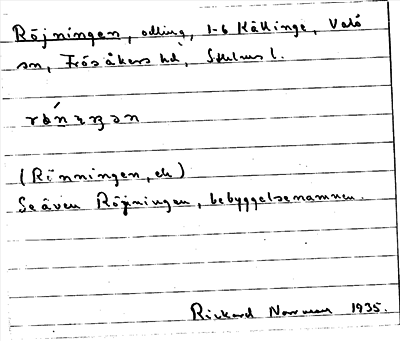 Röjningen, odling, 1-6 Källinge, Valö
sn, Frösåkers hd, Sthlms l.
(Rönningen, ek)
Se även Röjningen, bebyggelsenamnen.
Rickard Norman 1935.